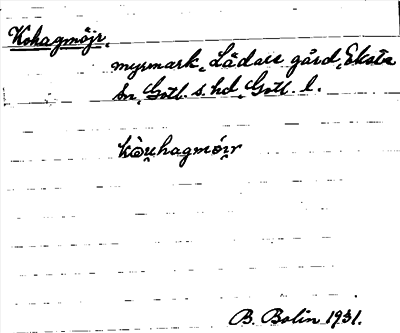 Kohagmöjr,
myrmark, Lådars gård, Eksta
sn, Gotl. s. hd, Gotl. l.
kòu̯hagmói̯r
B. Bolin 1931.